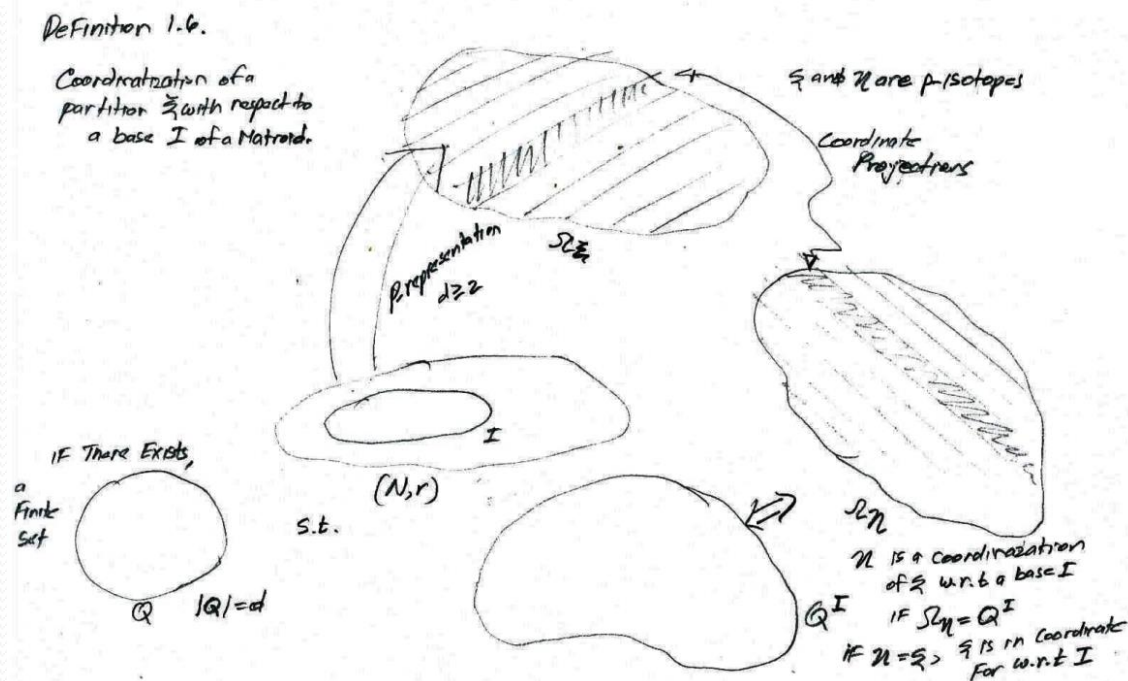 Definition 1.6.
Coordinatization of a
partition ξ with respect to
a base I of a Matroid.
ξ and η are p-isotopes
Coordinate
Projections
Ωξ
p-representation
d≥2
I
(N,r)
IF There Exists,
a
Finite
Set
Q |Q|=d
s.t.
Q^I
Ωη
η is a coordinazation
of ξ w.r.t a base I
if Ωη = Q^I
if η = ξ, ξ is in Coordinate
For w.r.t I